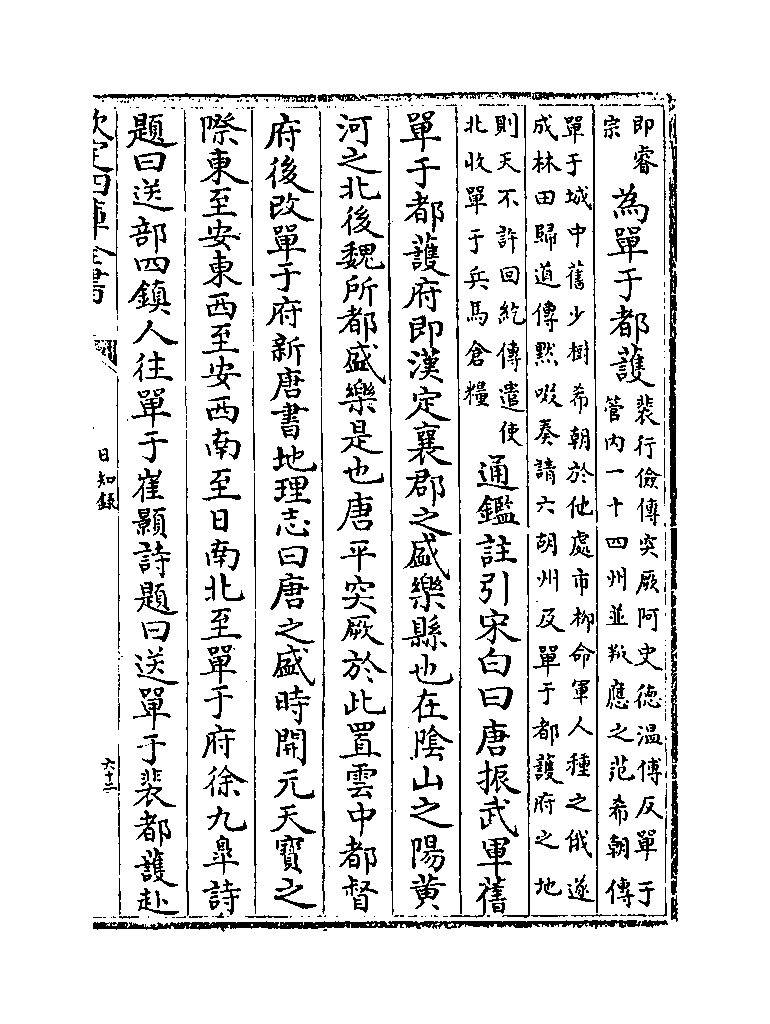 即睿
宗
為單于都護
裴行儉傳突厥阿史徳温傅反單于
管内一十四州並叛應之范希朝傳
單于城中舊少樹希朝於他處市柳命軍人種之俄遂
成林田歸道傳黙啜奏請六胡州及單于都護府之地
則天不許回紇傳遣使
北收單于兵馬倉糧
通鑑註引宋白曰唐振武軍舊
單于都護府即漢定襄郡之盛樂縣也在隂山之陽黄
河之北後魏所都盛樂是也唐平突厥於此置雲中都督
府後改單于府新唐書地理志曰唐之盛時開元天寳之
際東至安東西至安西南至日南北至單于府徐九臯詩
題曰送部四鎮人往單于崔顥詩題曰送單于裴都護赴
欽定四庫全書
日知録
六十二